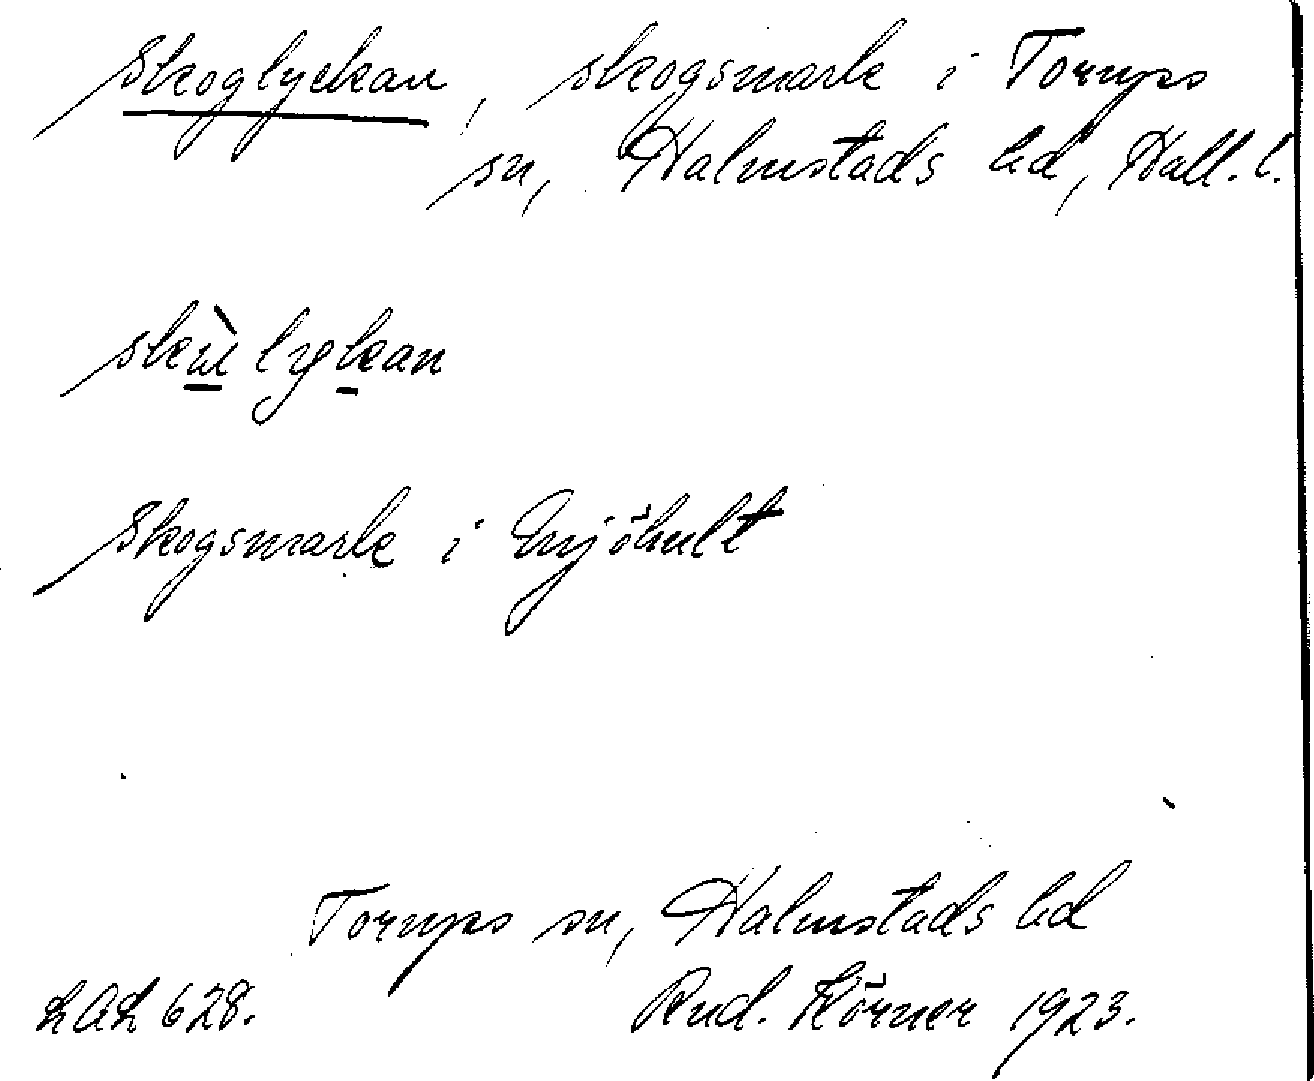 Skoglyckan, skogsmark i Torups
sn, Halmstads hd, Hall. l.
skùlykan
Skogsmark i Mjöhult
Torups sn, Halmstads hd
LAL 628.
Rud. Körner 1923.